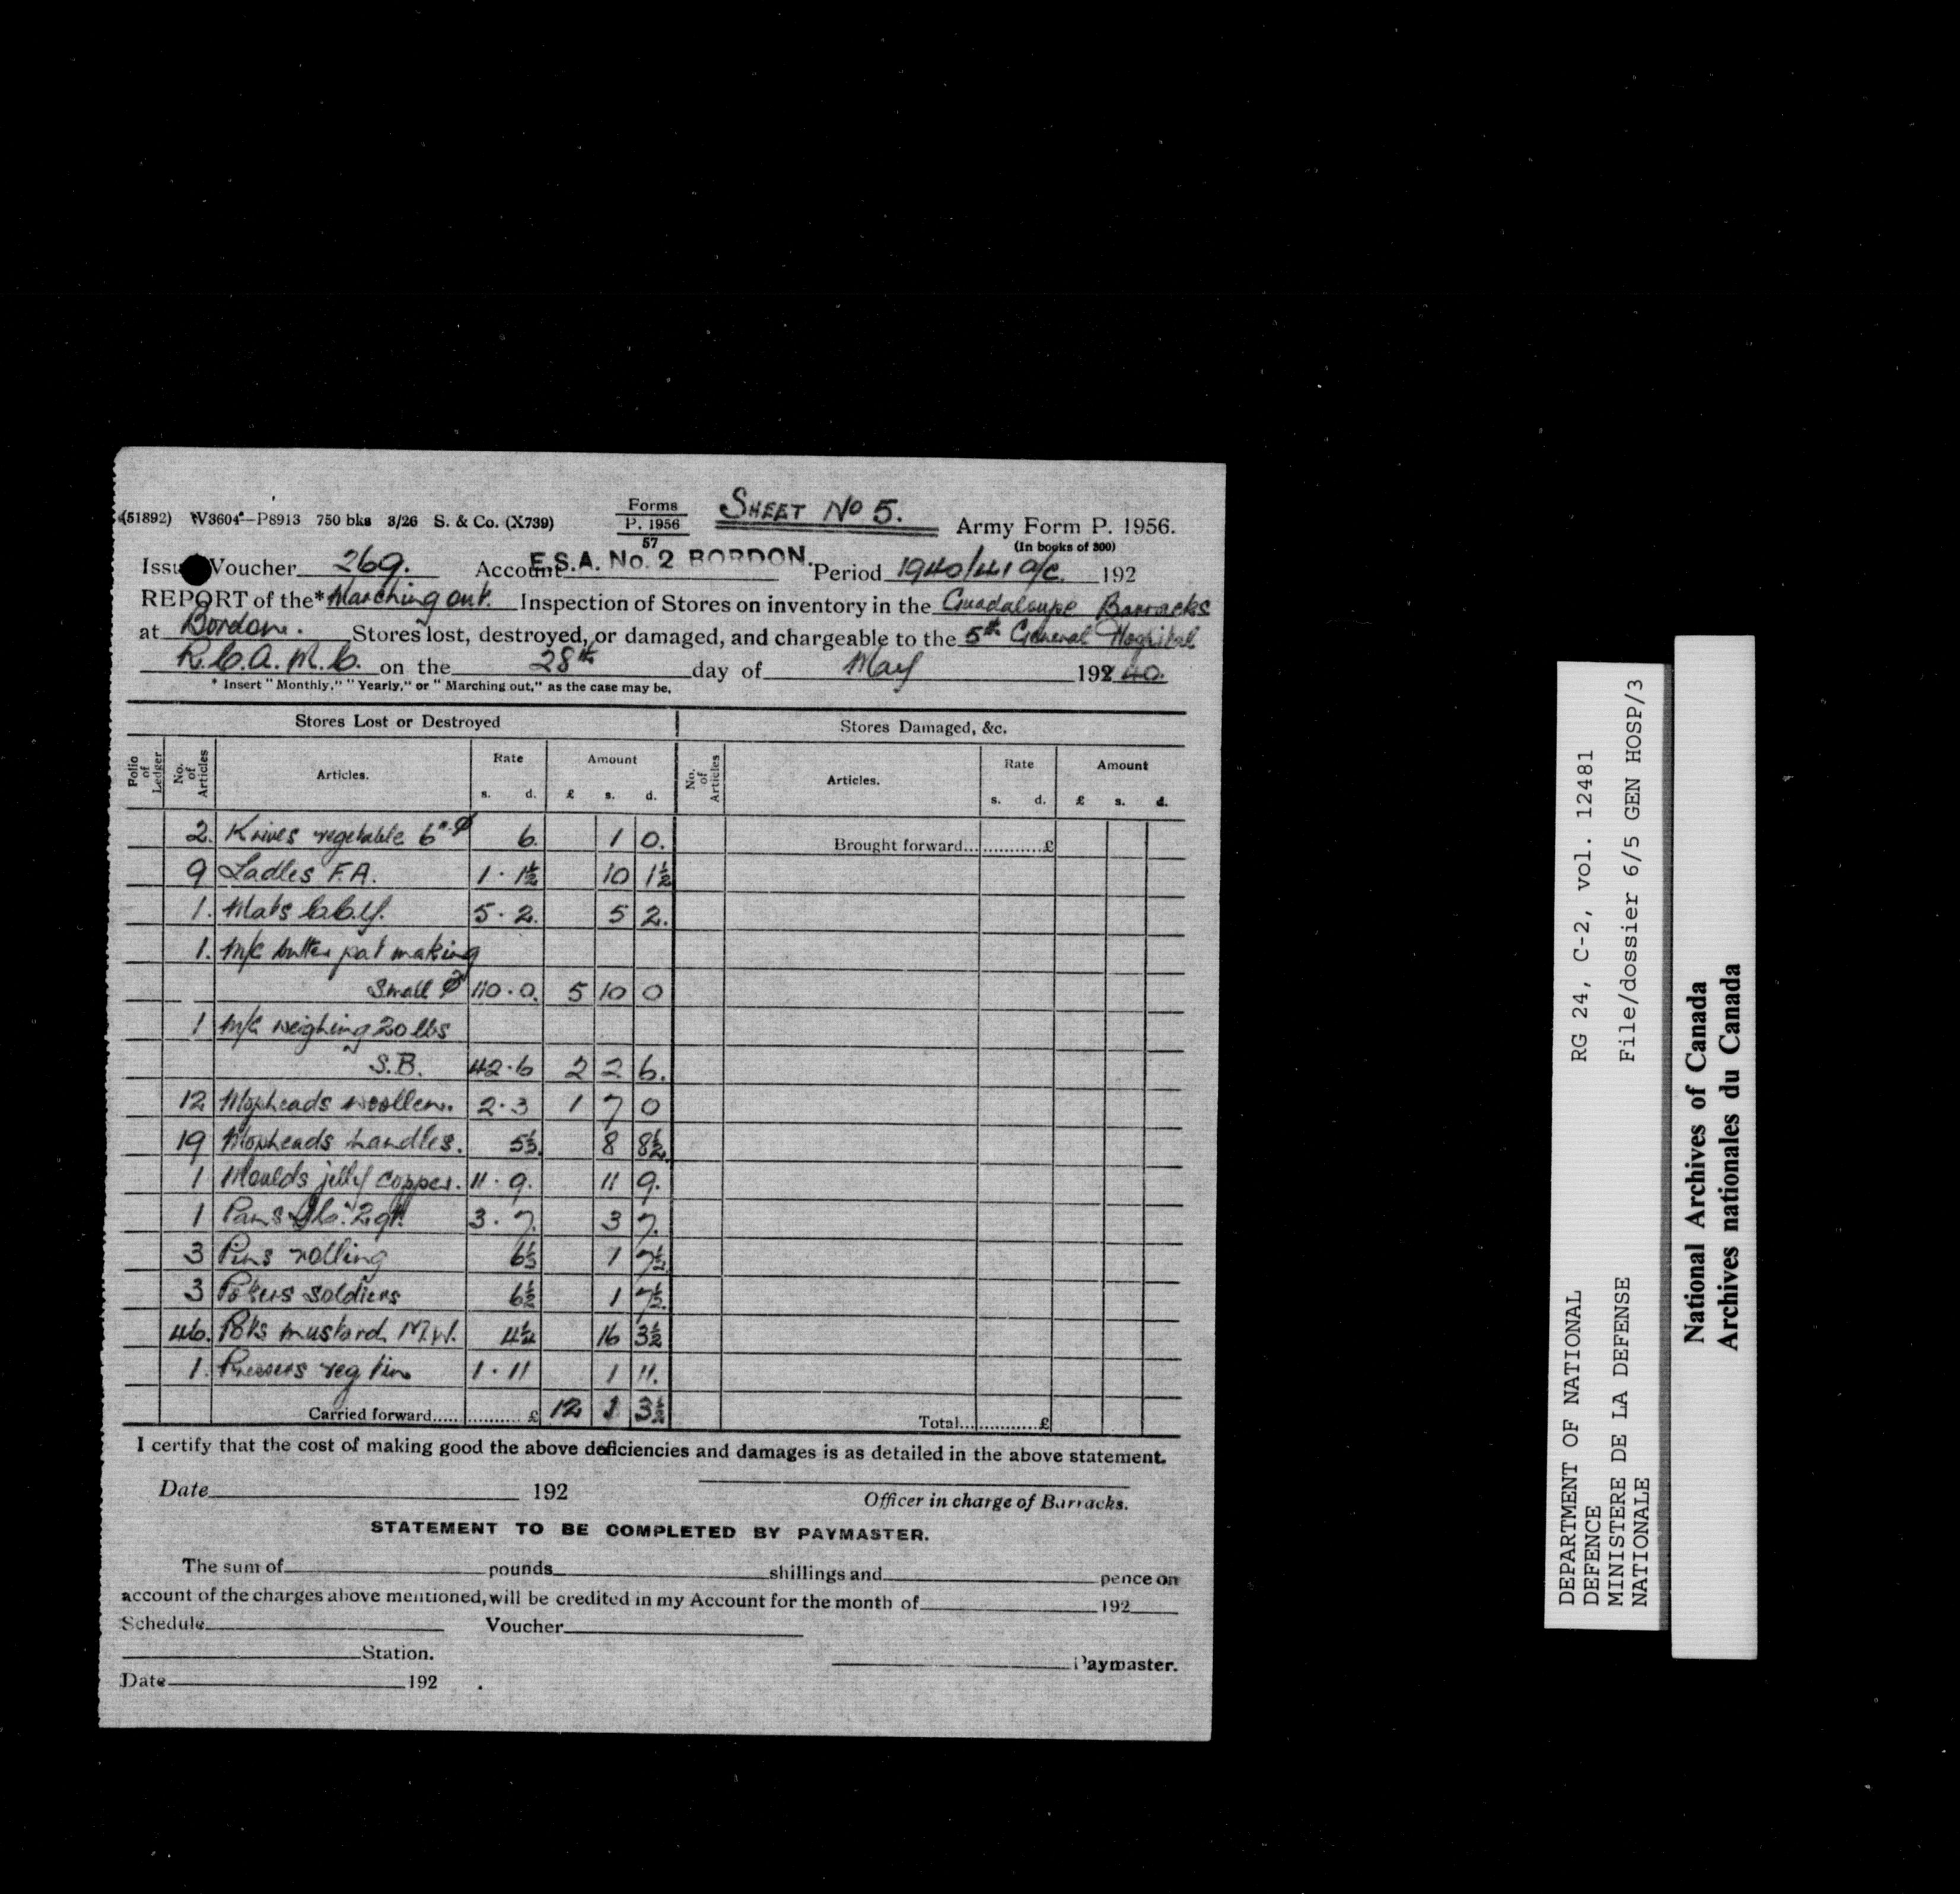 (51892) W3604—P8913 750 bks 3/26 S. & Co. (X739) Forms P. 1956 57 SHEET No 5. Army Form P. 1956.
(In books of 300)
Issue Voucher 269. Account E.S.A. No. 2 BORDON. Period 1940/41 a/c. 192
REPORT of the* Marching out. Inspection of Stores on inventory in the Guadaloupe Barracks
at Bordon. Stores lost, destroyed, or damaged, and chargeable to the 5th General Hospital
R.C.A.M.C. on the 28th day of May 192 40.
* Insert "Monthly," "Yearly," or "Marching out," as the case may be.
Stores Lost or Destroyed Stores Damaged, &c.
Folio of Ledger No. of Articles Articles. Rate Amount No. of Articles Articles. Rate Amount
s. d. £ s. d. s. d. £ s. d.
2. Knives vegetable 6" 6. 1 0. Brought forward... ............£
9 Ladles F.A. 1 . 1½ 10 1½
1. Mats 5 . 2. 5 2.
1. M/c butter pat making
Small 110 . 0. 5 10 0
1 M/c weighing 20 lbs
S.B. 42 . 6 2 2 6.
12 Mopheads woollen. 2 . 3 1 7 0
19 Mopheads handles. 5½. 8 8½.
1 Moulds jelly copper. 11 . 9. 11 9.
1 Pans 2 qt. 3 . 7. 3 7.
3 Pins rolling 6½ 1 7½.
3 Pokers soldiers 6½ 1 7½.
46. Pots mustard M.W. 4¼ 16 3½
1. Pressers veg tin 1 . 11 1 11.
Carried forward..... .......... £ 12 1 3½ Total... ............£
I certify that the cost of making good the above deficiencies and damages is as detailed in the above statement.
Date 192
Officer in charge of Barracks.
STATEMENT TO BE COMPLETED BY PAYMASTER.
The sum of pounds shillings and pence on
account of the charges above mentioned, will be credited in my Account for the month of 192
Schedule Voucher
Station.
Paymaster.
Date 192
DEPARTMENT OF NATIONAL RG 24, C-2, vol. 12481
DEFENCE
MINISTERE DE LA DEFENSE File/dossier 6/5 GEN HOSP/3
NATIONALE
National Archives of Canada
Archives nationales du Canada